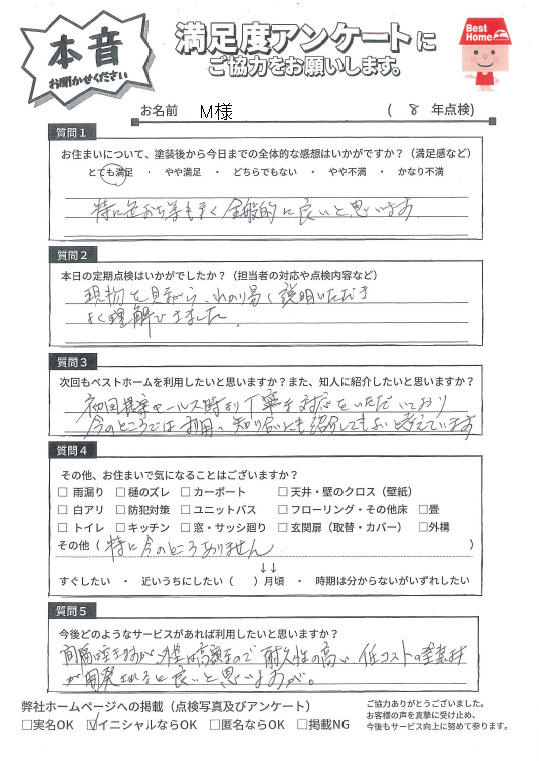 本音
お聞かせください
満足度アンケートに
ご協力をお願いします。
Best Home
お名前 M様 ( 8 年点検)
質問1
お住まいについて、塗装後から今日までの全体的な感想はいかがですか？（満足感など）
とても満足 ・ やや満足 ・ どちらでもない ・ やや不満 ・ かなり不満
特に色おち等もなく全般的に良いと思います
質問2
本日の定期点検はいかがでしたか？（担当者の対応や点検内容など）
現物を見ながら、わかり易く説明いただき
よく理解できました。
質問3
次回もベストホームを利用したいと思いますか？また、知人に紹介したいと思いますか？
初回見学セールス時より丁寧な対応をいただいており
今のところでは利用、知り合いにも紹介してもよいと考えています
質問4
その他、お住まいで気になることはございますか？
□ 雨漏り □ 樋のズレ □ カーポート □ 天井・壁のクロス（壁紙）
□ 白アリ □ 防犯対策 □ ユニットバス □ フローリング・その他床 □畳
□ トイレ □ キッチン □ 窓・サッシ廻り □ 玄関扉（取替・カバー） □外構
その他（特に今のところありません ）
↓↓
すぐしたい ・ 近いうちにしたい（ ）月頃 ・ 時期は分からないがいずれしたい
質問5
今後どのようなサービスがあれば利用したいと思いますか？
間隔は空きますが、外壁は高額なので耐久性の高い、低コストの塗装材
が開発されると良いと思いますが。
弊社ホームページへの掲載（点検写真及びアンケート）
□実名OK ☑イニシャルならOK □匿名ならOK □掲載NG
ご協力ありがとうございました。
お客様の声を真摯に受け止め、
今後もサービス向上に努めて参ります。